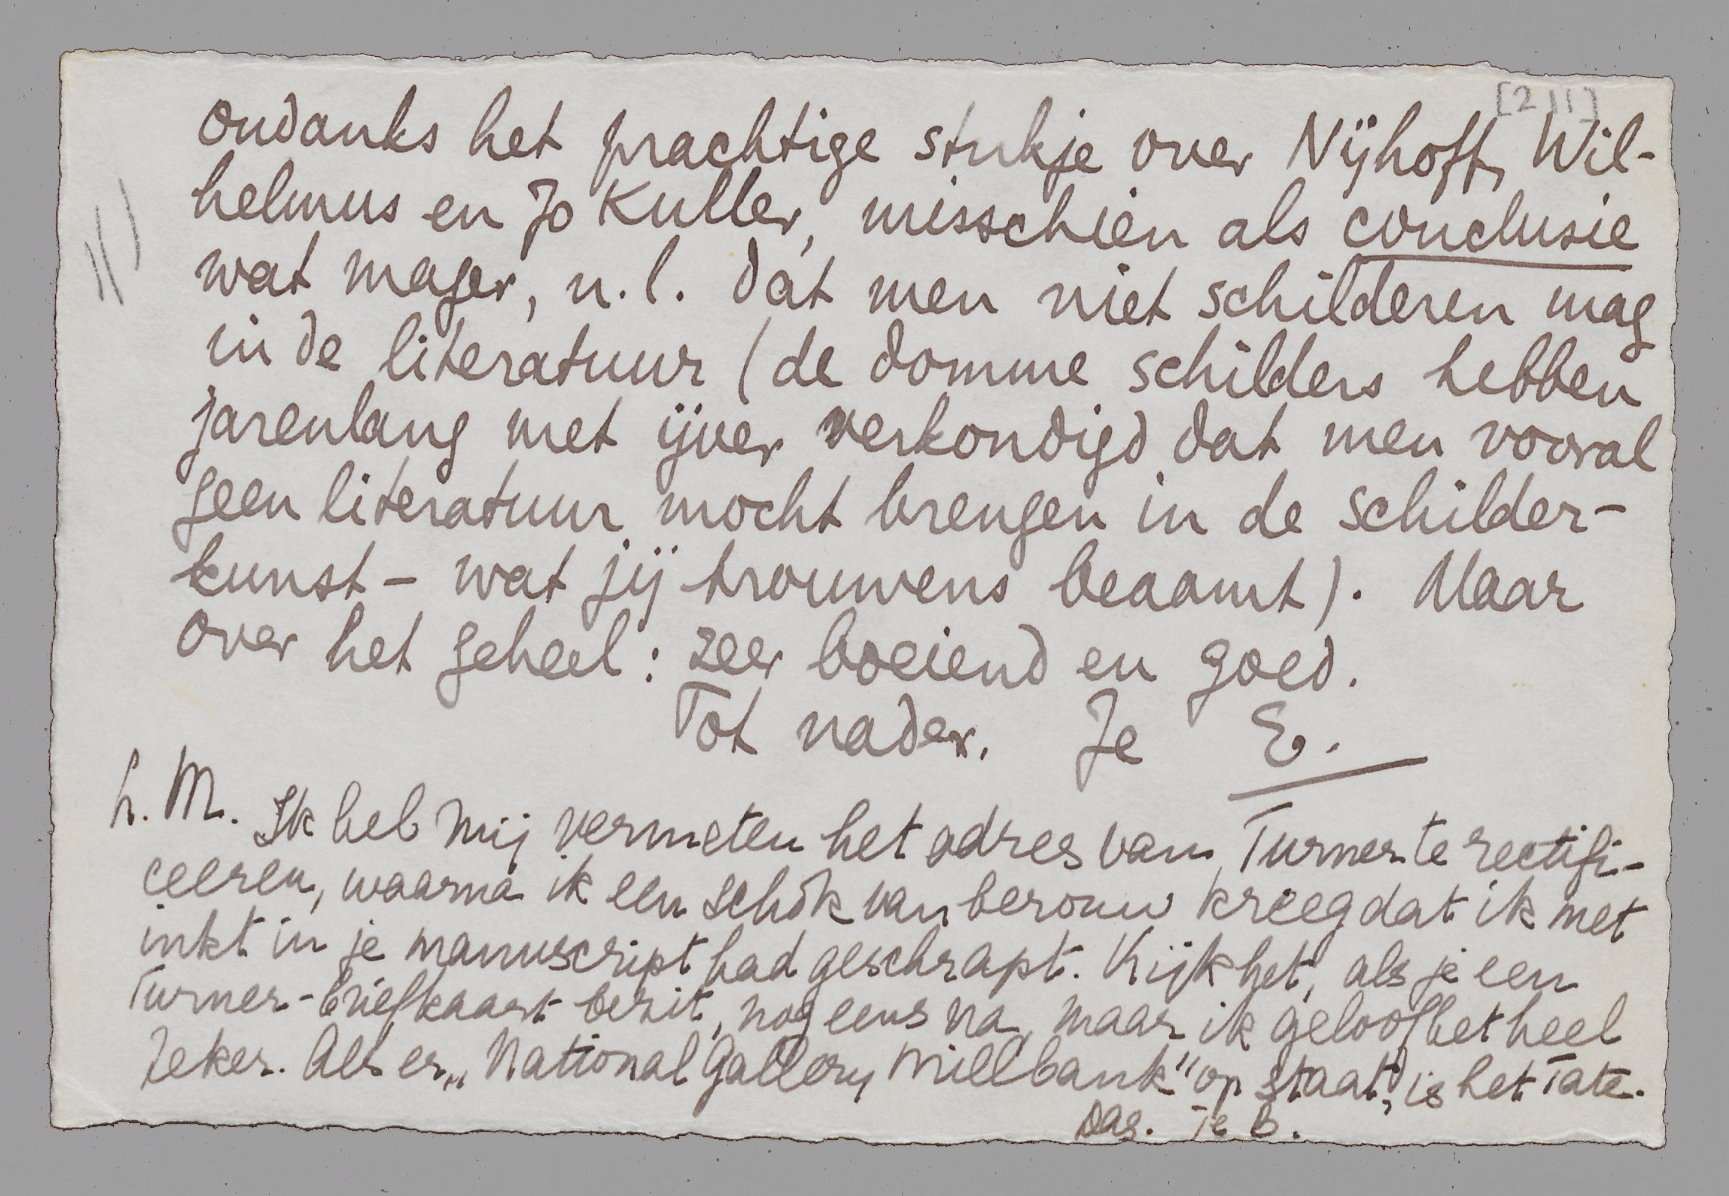 [2 11]
ondanks het prachtige stukje over Nijhoff, Wil-
helmus en Jo Kuller, misschien als conclusie
wat mager, n.l. dat men niet schilderen mag
in de literatuur (de domme schilders hebben
jarenlang met ijver verkondigd dat men vooral
geen literatuur mocht brengen in de schilder-
kunst - wat jij trouwens beaamt). Maar
over het geheel: zeer boeiend en goed.
Tot nader. Je E.
L. M. Ik heb mij vermeten het adres van Turner te rectifi-
ceeren, waarna ik een schok van berouw kreeg dat ik met
inkt in je manuscript had geschrapt. Kijk het, als je een
Turner-briefkaart bezit, nog eens na, maar ik geloof het heel
zeker. Als er „National Gallery Millbank" op staat, is het Tate.
Dag. Je B.